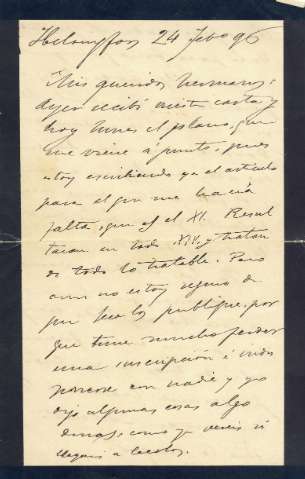 Helsingfors 24 Feb 96
Mis queridos hermanos:
ayer recibí vuestra carta y
hoy lunes el plano, que
me viene á punto, pues
estoy escribiendo ya el artículo
para el que me hacía
falta, que es el XI. Resul
tarán en todo XIV, y tratan
de todo lo tratable. Pero
aun no estoy seguro de
que Seco los publique, por
que tiene mucho
una suscripción é indis
ponerse con nadie y yo
digo algunas cosas algo
duras, como ya vereis si
llegais á leerlos.